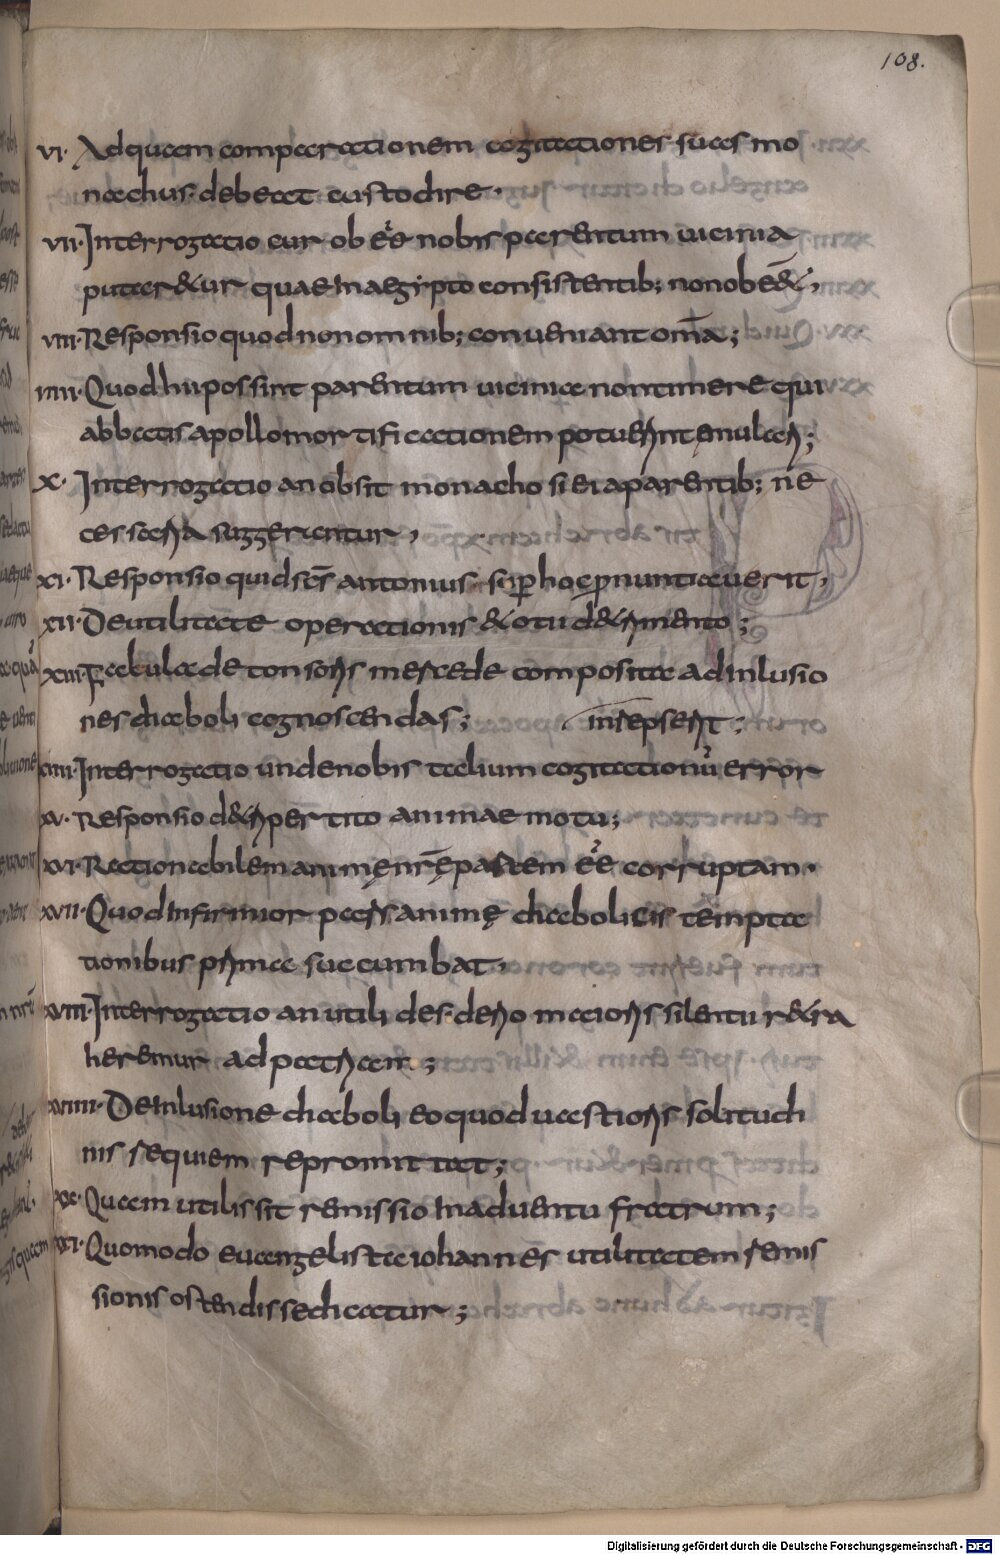 108.
VI· Ad quam comparationem cogitationes suas mo
nachus debeat custodire·
VII· Interrogatio cur ob eē nobis parentum uicinia
putar&ur quae in aegipto consistentib; non obēē&,
VIII· Responsio quod non omnib; conueniant om̄a;
VIIII· Quod hii possint parentum uiciniae non timere qui
abbatis apollo mortificationem potuerint emulari;
X· Interrogatio an obsit monacho si ei a parentib; ne
cessaria suggerientur,
XI· Responsio quid sc̄s antonius sup̄ hoc pronuntiauerit,
XII· De utilitate operationis & otii d&rimento;
XIII· Fabula de tonsoris mercede composita ad inlusio
nes diaboli cognoscendas; inrepserit;
XIIII· Interrogatio unde nobis talium cogitationū error
XV· Responsio d& ripertito animae motu;
XVI· Rationabilem animę nr̄ę partem eē corruptam·
XVII· Quod infirmior pars animę diabolicis tempta
tionibus prima succumbat,
XVIII· Interrogatio an utili desiderio maioris silentii r&ra
heremur ad patriam;
XVIIII· De inlusione diaboli eo quod uastioris solitudi
nis requiem repromittat;
XX· Quam utilis sit remissio in aduentu fratrum;
XXI· Quomodo euangelista iohannes utilitatem remis
sionis ostendisse dicatur;
Digitalisierung gefördert durch die Deutsche Forschungsgemeinschaft - DFG